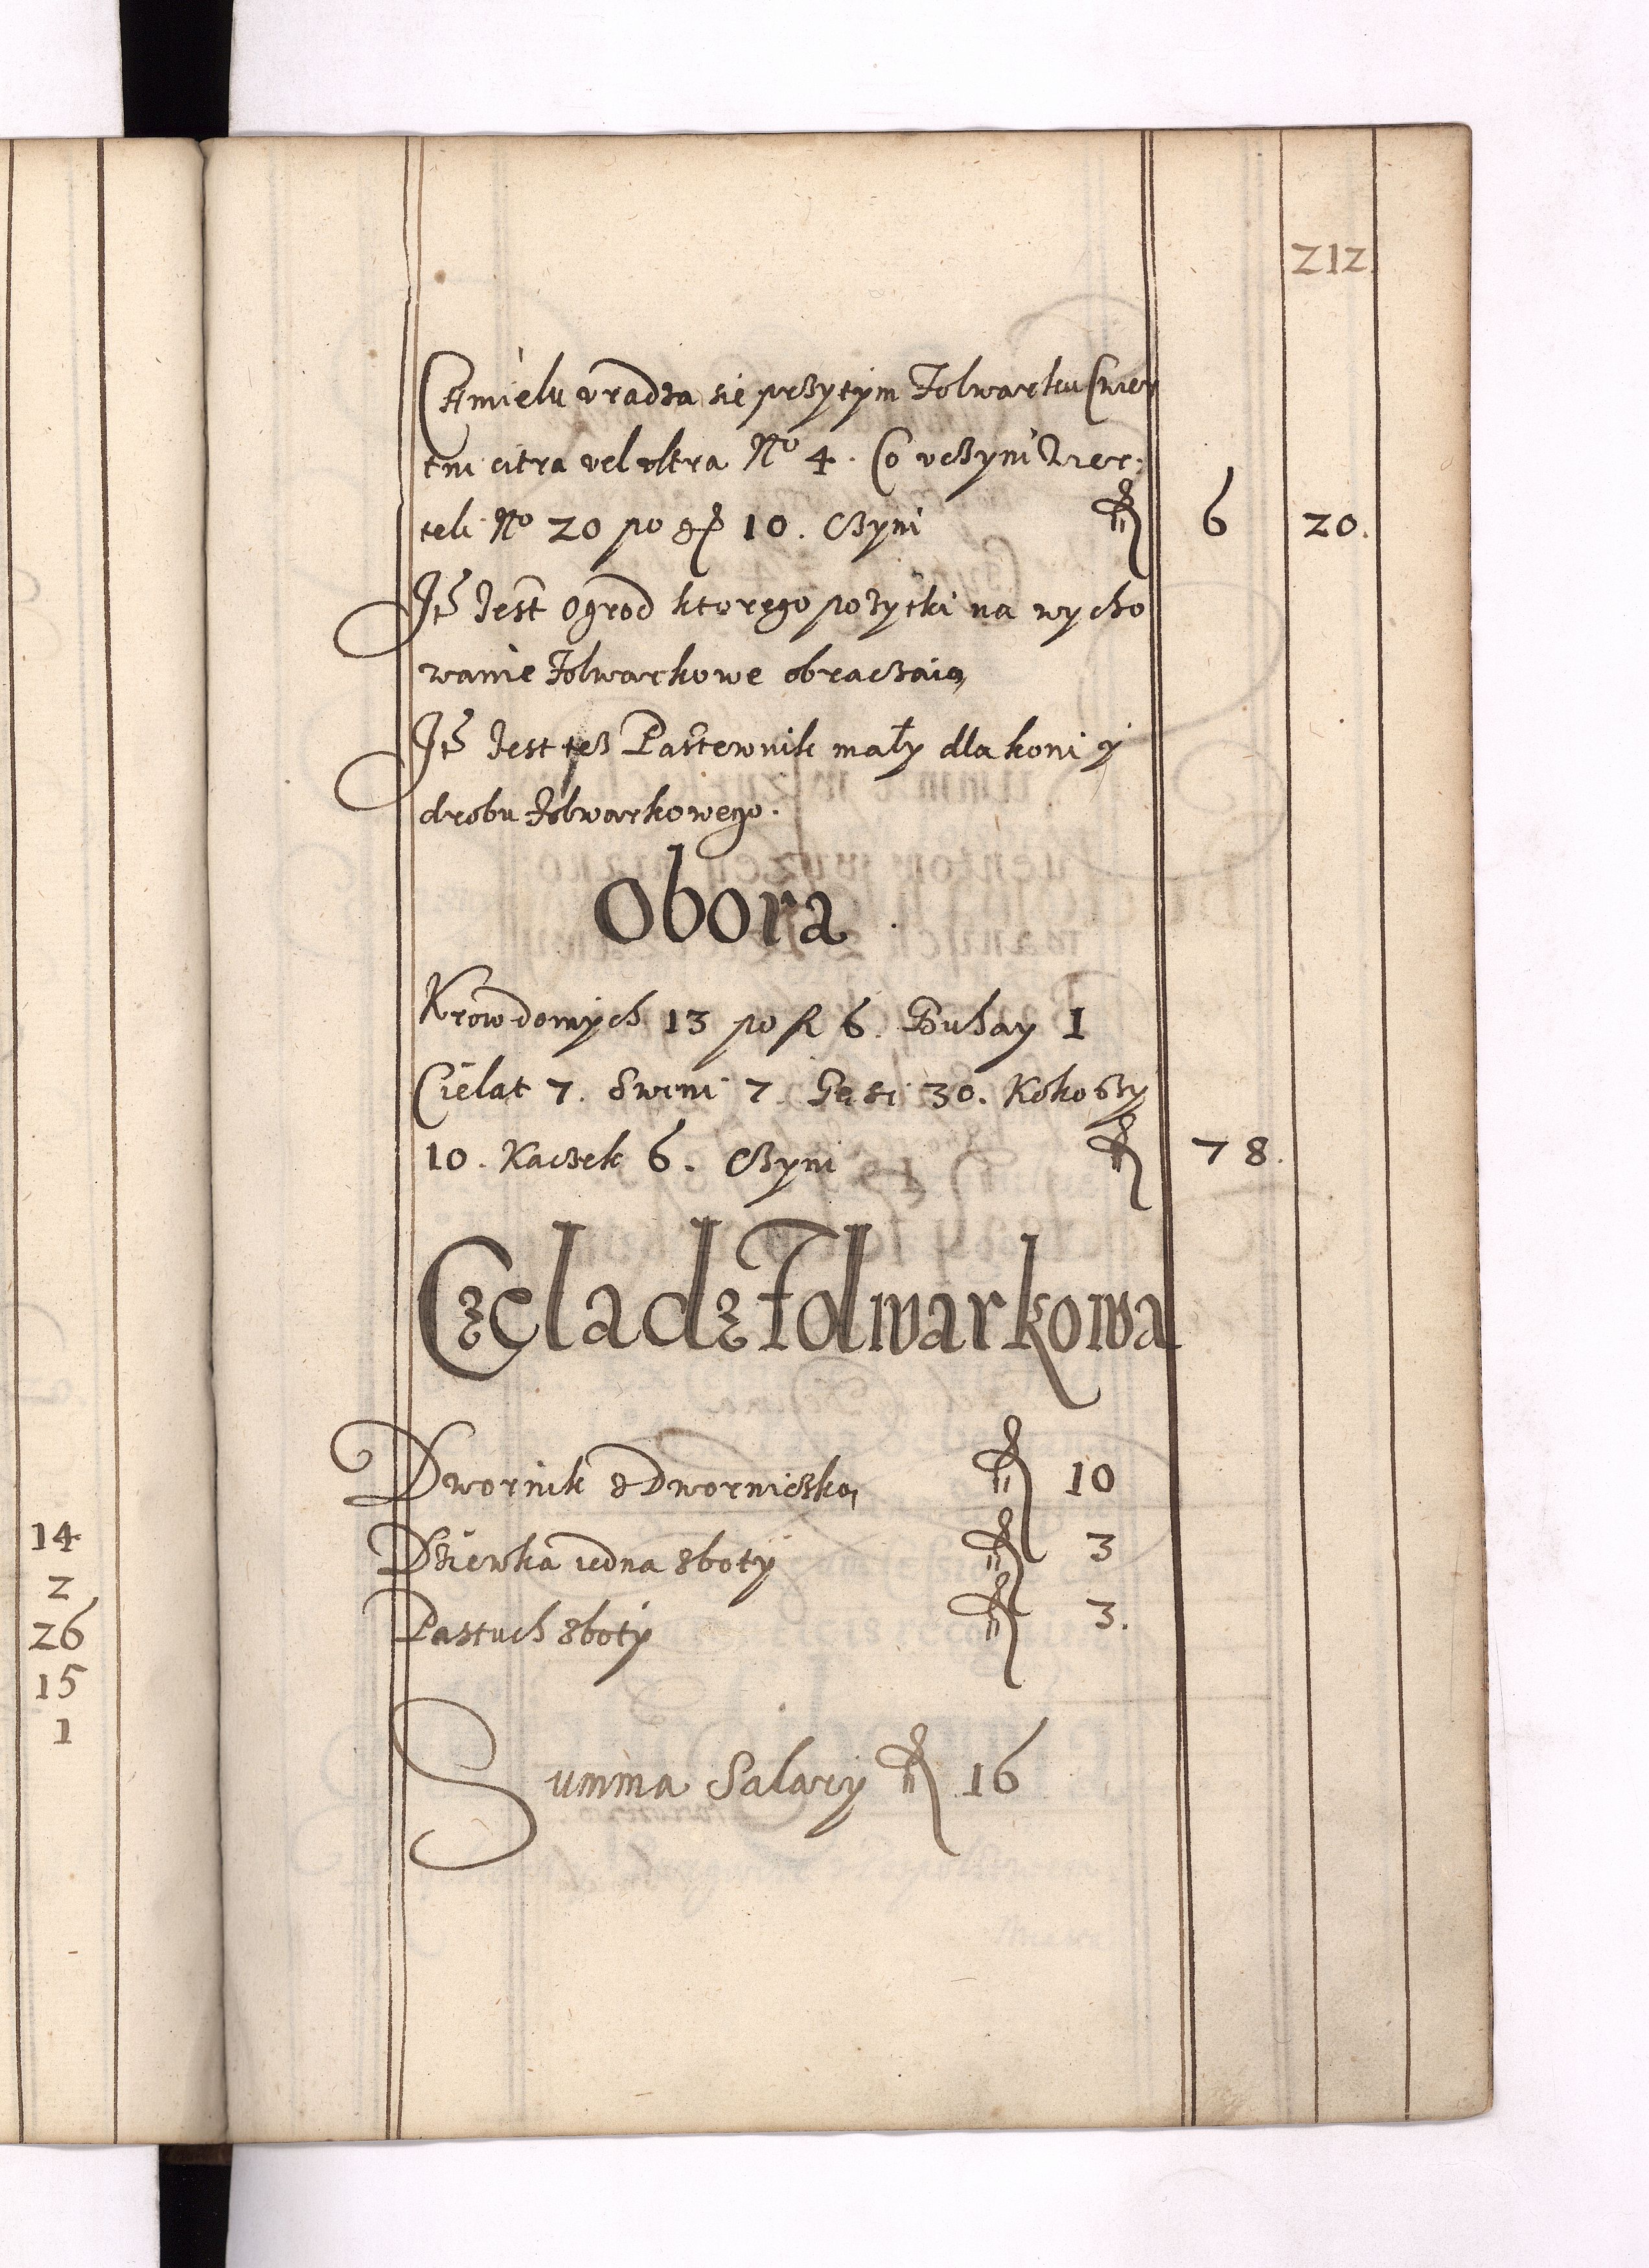 212.
Chmielu vradza sie przytym Folwarku Cwier
tni citra vel vltra No 4. Co vczyni Wier:
teli No 20 po gr 10. Czyni fl 6 20.
Ite Jest Ogrod ktorego pozytki na wycho
wanie Folwarkowe obraczaią
Ite Jest tesz Pastewnik mały dla koni y
drobu Folwarkowego.
Obora
Krow domych 13 po fl 6. Buhay 1
Cielat 7. Swini 7 Gęsi 30. Kokoszy
10. Kaczek 6. Czyni fl 78.
Czeladz Folwarkowa
Dwornik z Dworniczką fl 10
Dziewka iedna zboty fl 3
Pastuch zboty fl 3.
Summa Salary fl 16
14
2
26
15
1